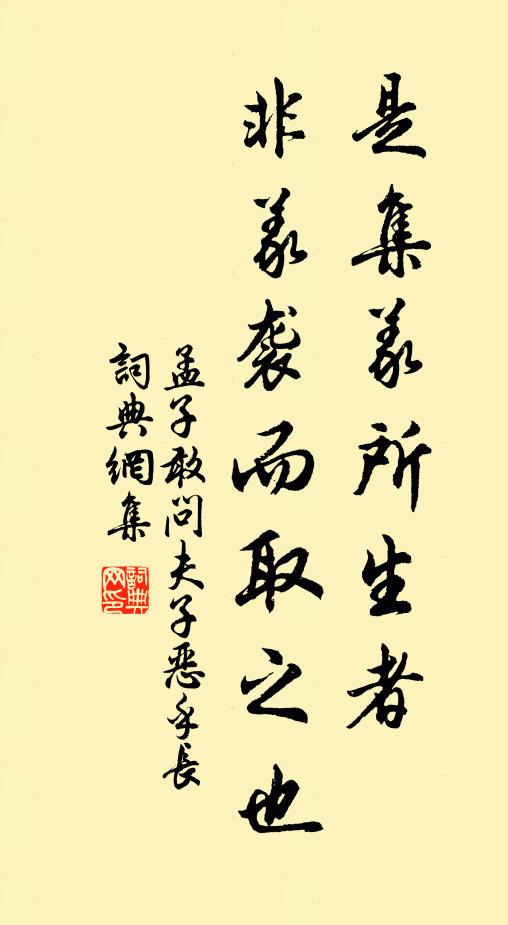 是集義所生者
非義袭而取之也
孟子敢问夫子惡乎長
詞典網集
詞典
网印